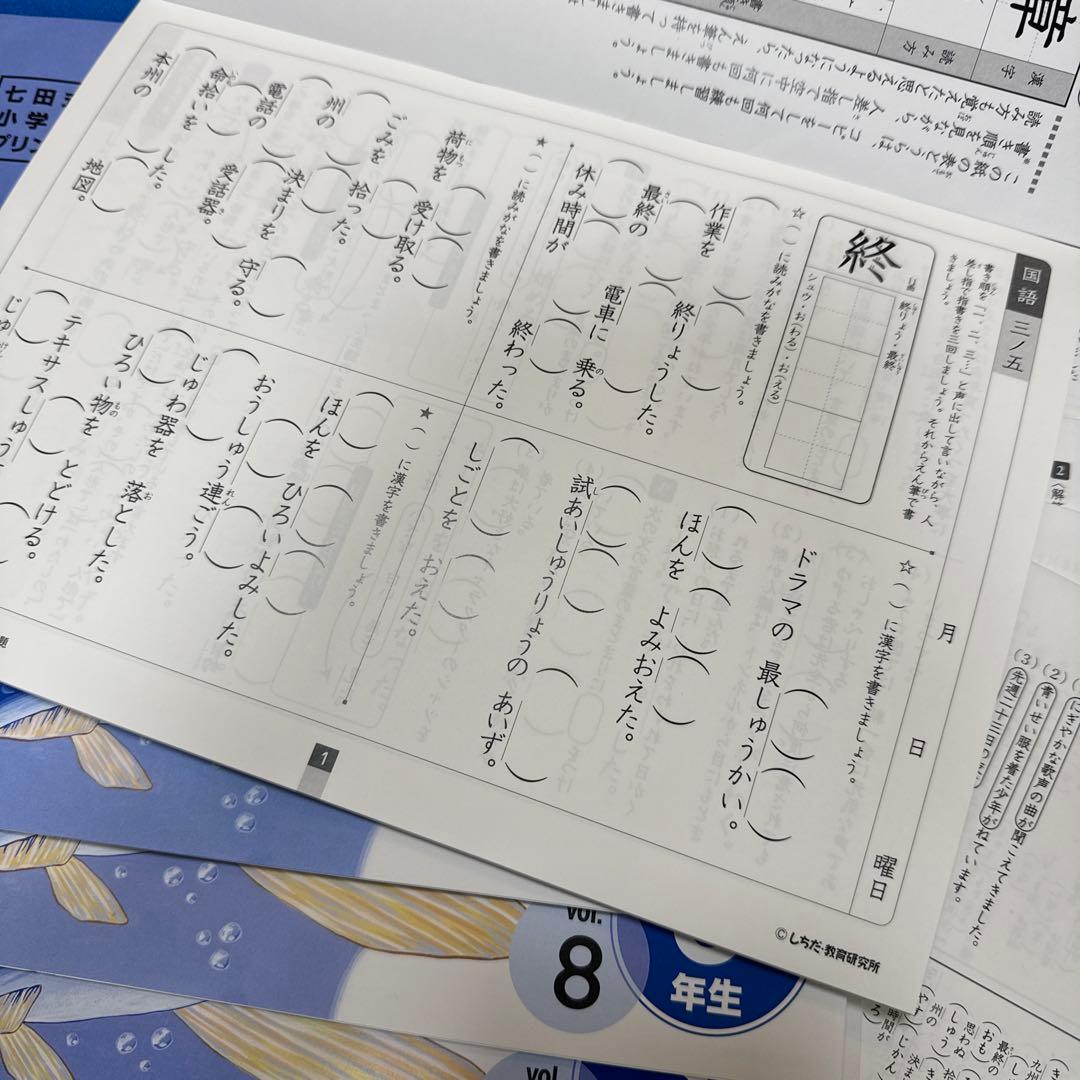 国語 三ノ五
月 日 曜日
書き順を「一、二、三…」と声に出して言いながら、人
差し指で指書きを三回しましょう。それからえん筆で書
きましょう。
終
シュウ・お(わる)・お(える)
終りょう・最終
☆( )に読みがなを書きましょう。
作業を 終りょうした。
最終の 電車に 乗る。
休み時間が 終わった。
☆( )に漢字を書きましょう。
ドラマの 最しゅうかい。
ほんを よみおえた。
試あいしゅうりょうの あいず。
しごとを おえた。
★( )に読みがなを書きましょう。
荷物を 受け取る。
ごみを 拾った。
州の 決まりを 守る。
電話の 受話器。
命拾いを した。
本州の 地図。
★( )に漢字を書きましょう。
ほんを ひろいよみした。
おうしゅう連ごう。
じゅわ器を 落とした。
ひろい物を とどける。
テキサスしゅう
1
©しちだ・教育研究所
章
漢字
読み方
この紙の表とうらは、コピーをして何回も練習しましょう。
書き順を見ながら、人差し指で空中に何回も書きましょう。
読み方も覚えたと思えるようになったら、えん筆を持って書きましょう。
七田
小学
プリン
2
(2)青いせい服を着た少年がねています。
にぎやかな歌声の曲が聞こえてきました。
(3)先週二十三日の
vol.
8
年生
vol.